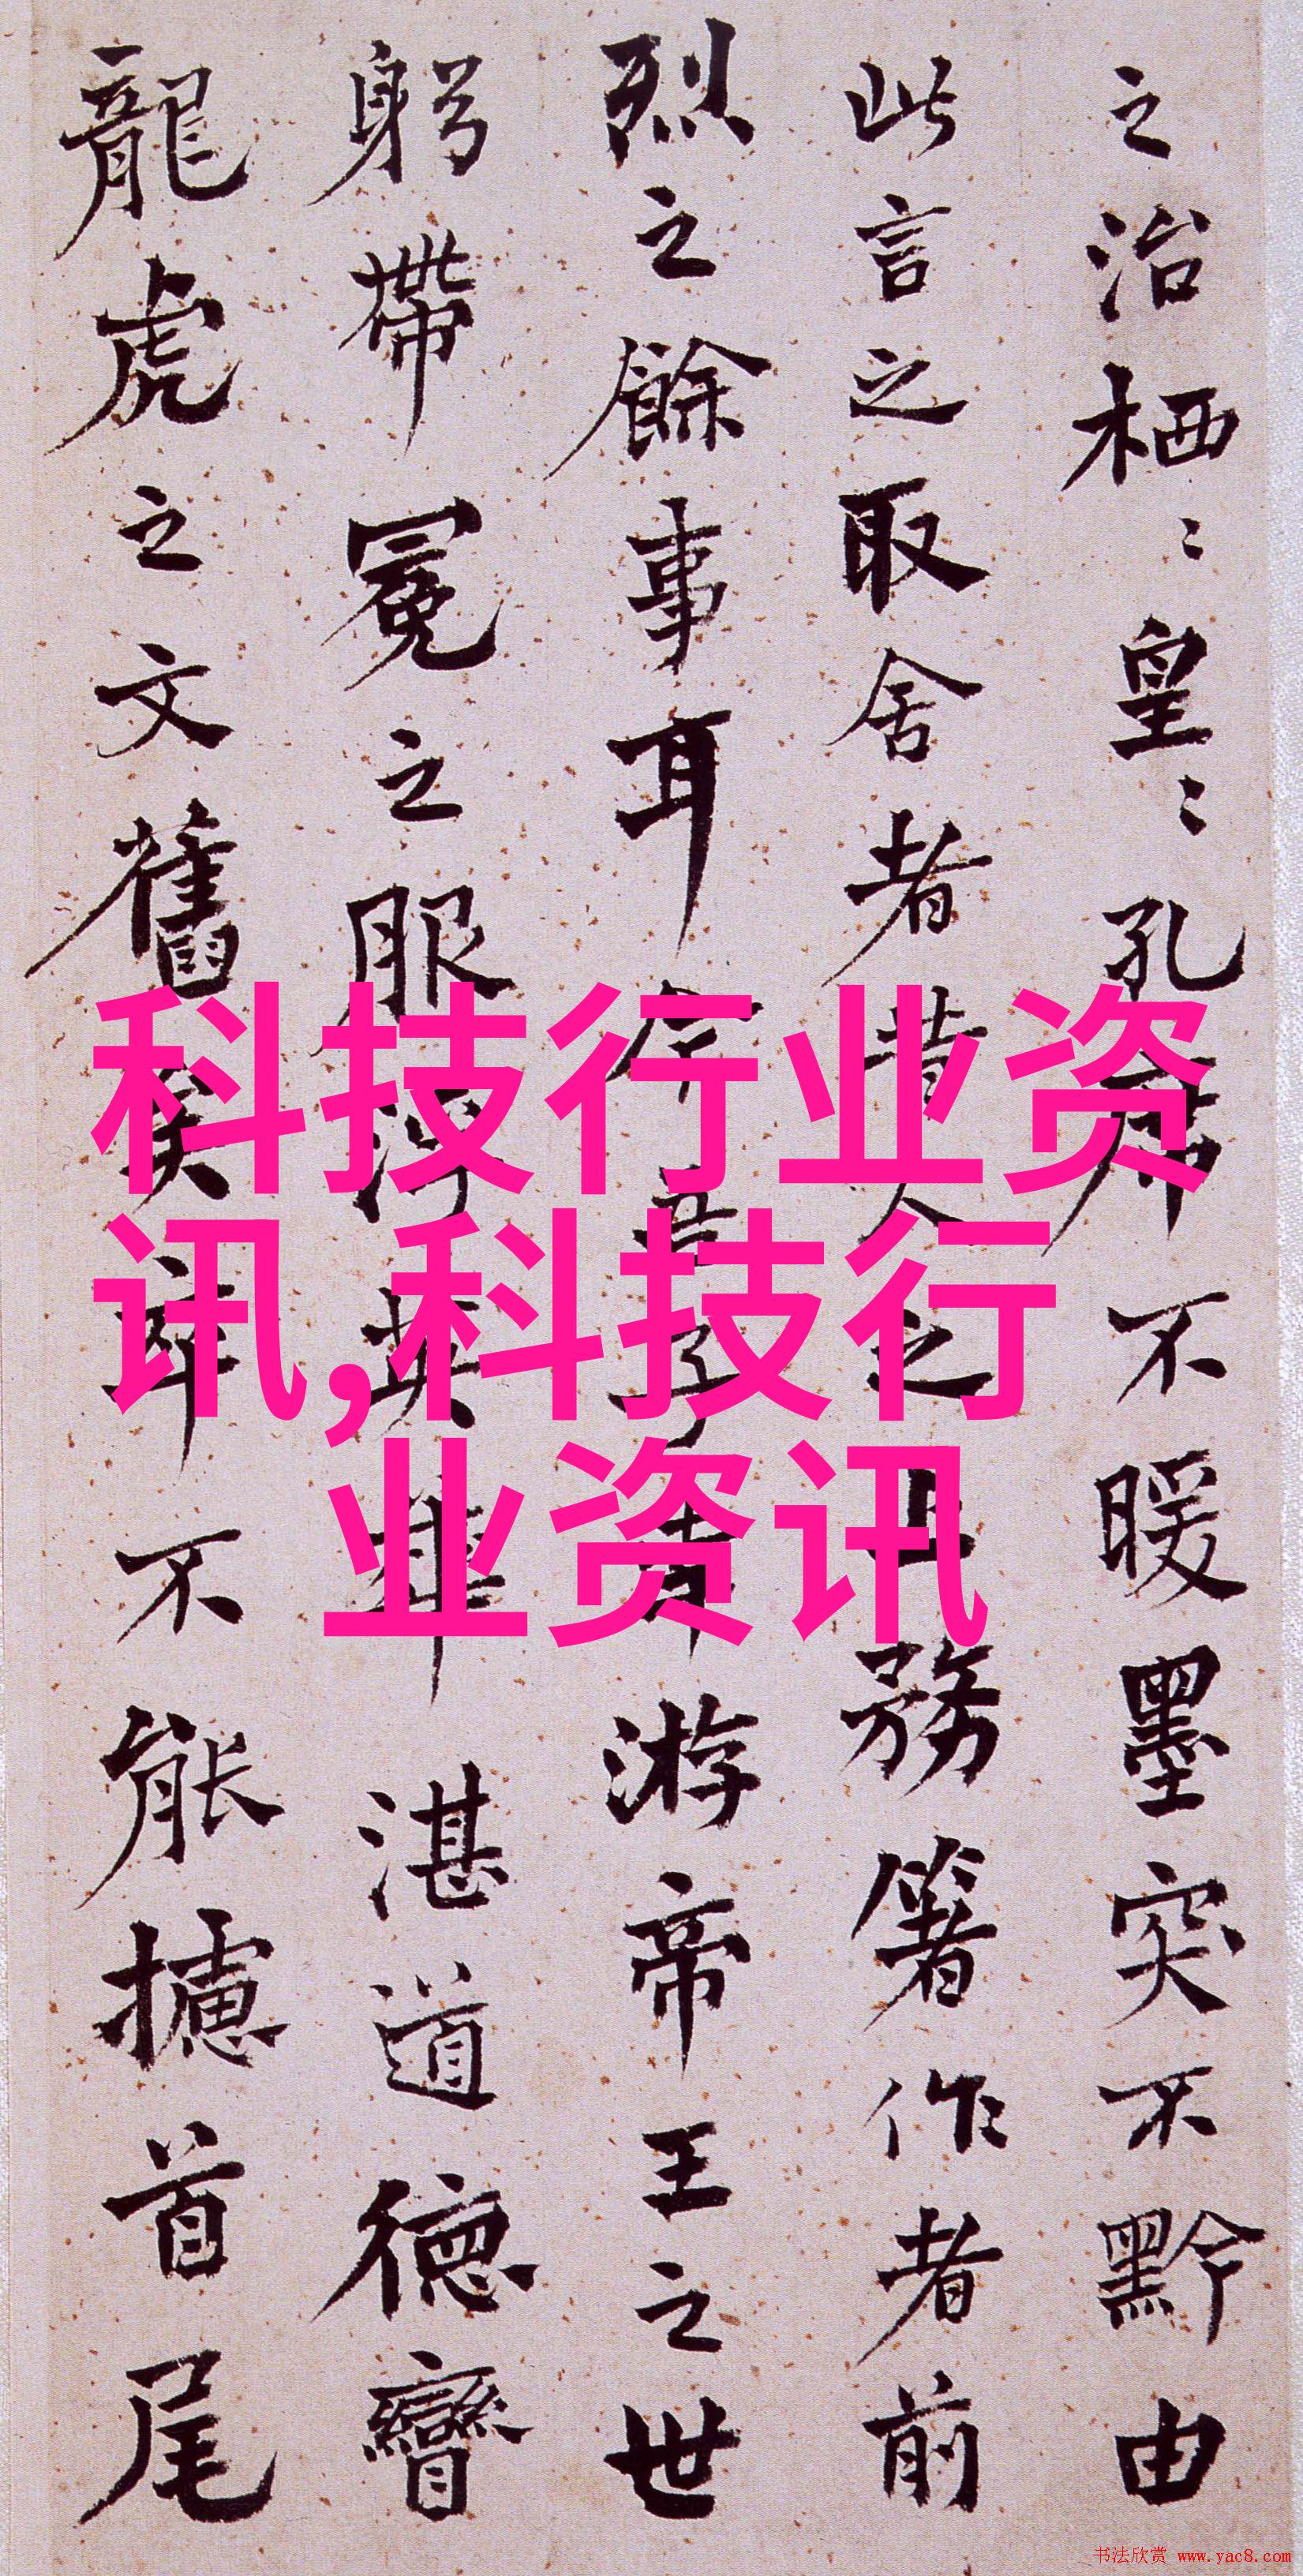 之治栖〻皇〻孔席不暖墨突不黔由
此言之取舍者昔人之上務箸作者前
烈之餘事耳今吾子幸游帝王之世
躬帶冕之服浮英華湛道德矕
龍虎之文舊矣卒不能攄首尾
科技行业资
讯,科技行
业资讯
书法欣赏 www.yac8.com